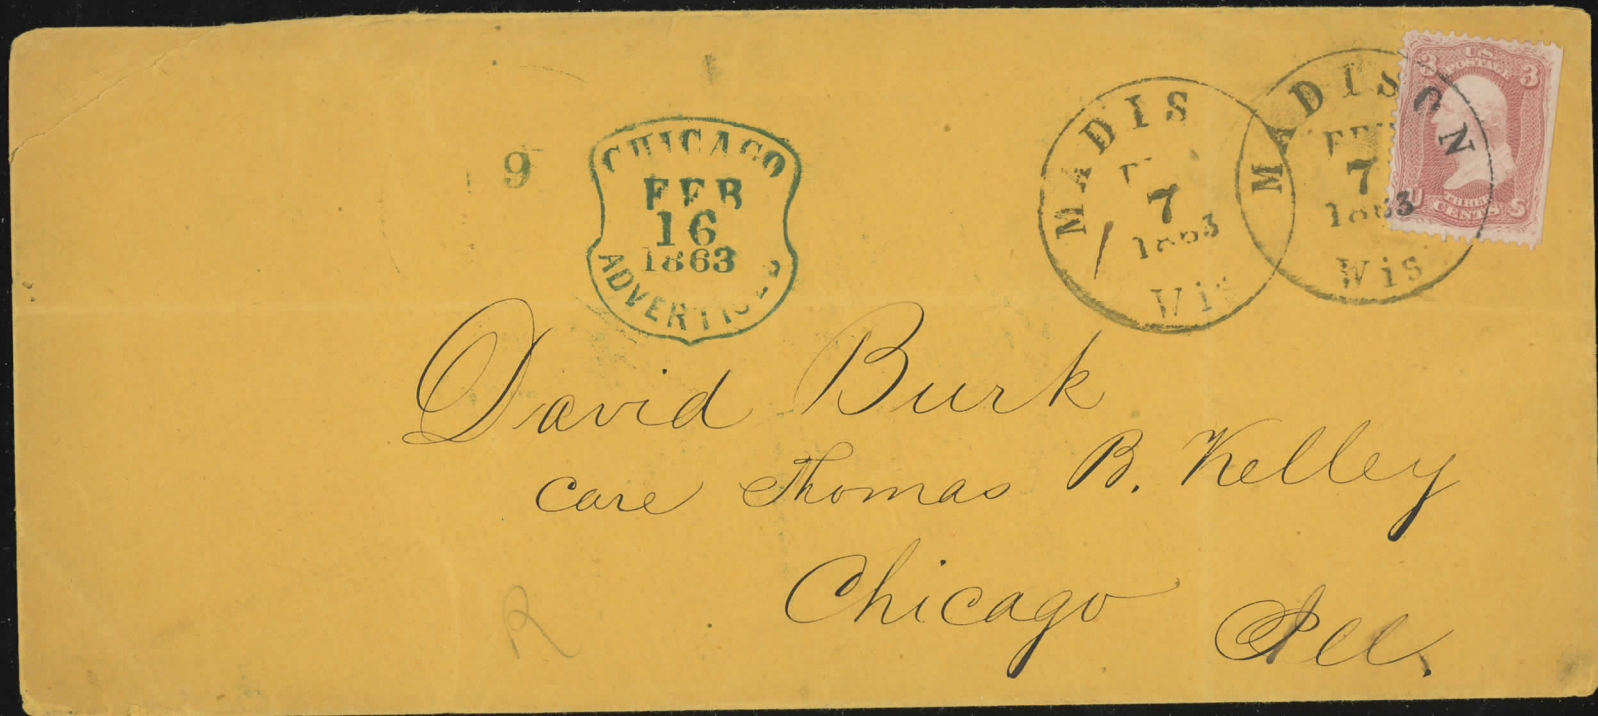 9
CHICAGO
FEB
16
1863
ADVERTISED
MADIS
7
1863
Wis
MADISON
FEB
7
1863
Wis
3 U.S. POSTAGE 3
U THREE CENTS S
David Burk
Care Thomas B. Kelley
Chicago
Ill.
R